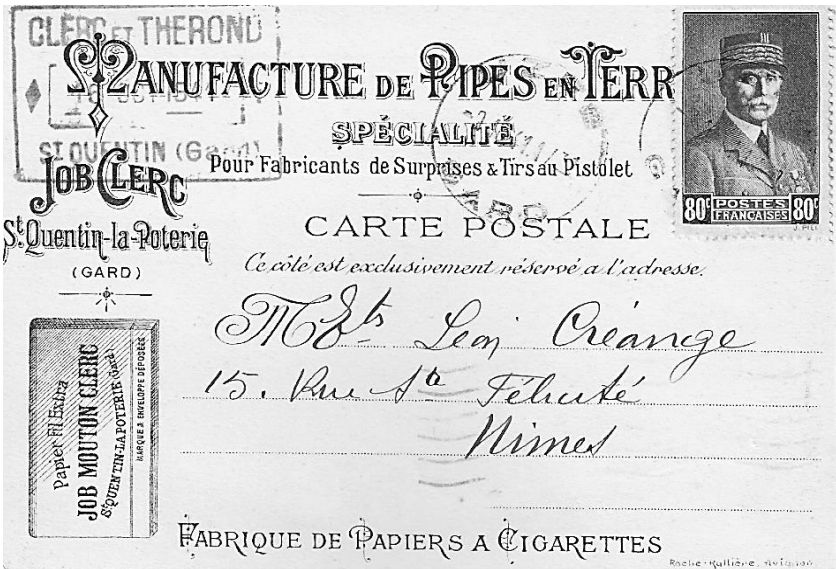 CLERC ET THEROND
ST QUENTIN (Gard)
MANUFACTURE DE PIPES EN TERR
SPÉCIALITÉ
Pour Fabricants de Surprises & Tirs au Pistolet
JOB CLERC
St. Quentin-la-Poterie
(GARD)
80c POSTES FRANÇAISES 80c
GARD
CARTE POSTALE
Ce côté est exclusivement réservé a l'adresse.
M Ets Léon Créange
15. Rue Ste Félicité
Nimes
Papier Fil Extra
JOB MOUTON CLERC
St QUENTIN-LA POTERIE (Gard)
MARQUE & ENVELOPPE DÉPOSÉES
FABRIQUE DE PAPIERS A CIGARETTES